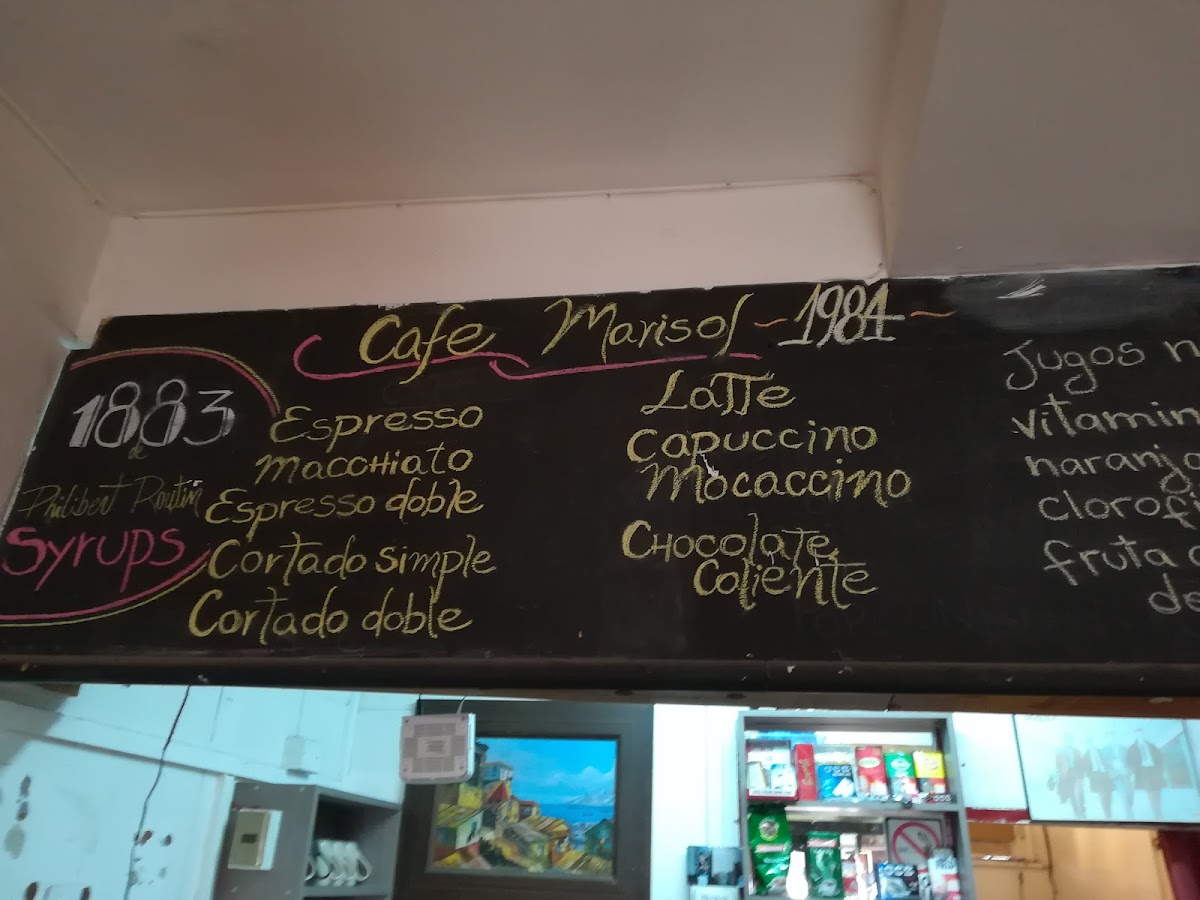 Cafe Marisol - 1984 -
1883
de
Philibert Routin
Syrups
Espresso
Macchiato
Espresso doble
Cortado simple
Cortado doble
Latte
Capuccino
Mocaccino
Chocolate
Caliente
Jugos n
vitamin
naranja
clorofi
fruta
de